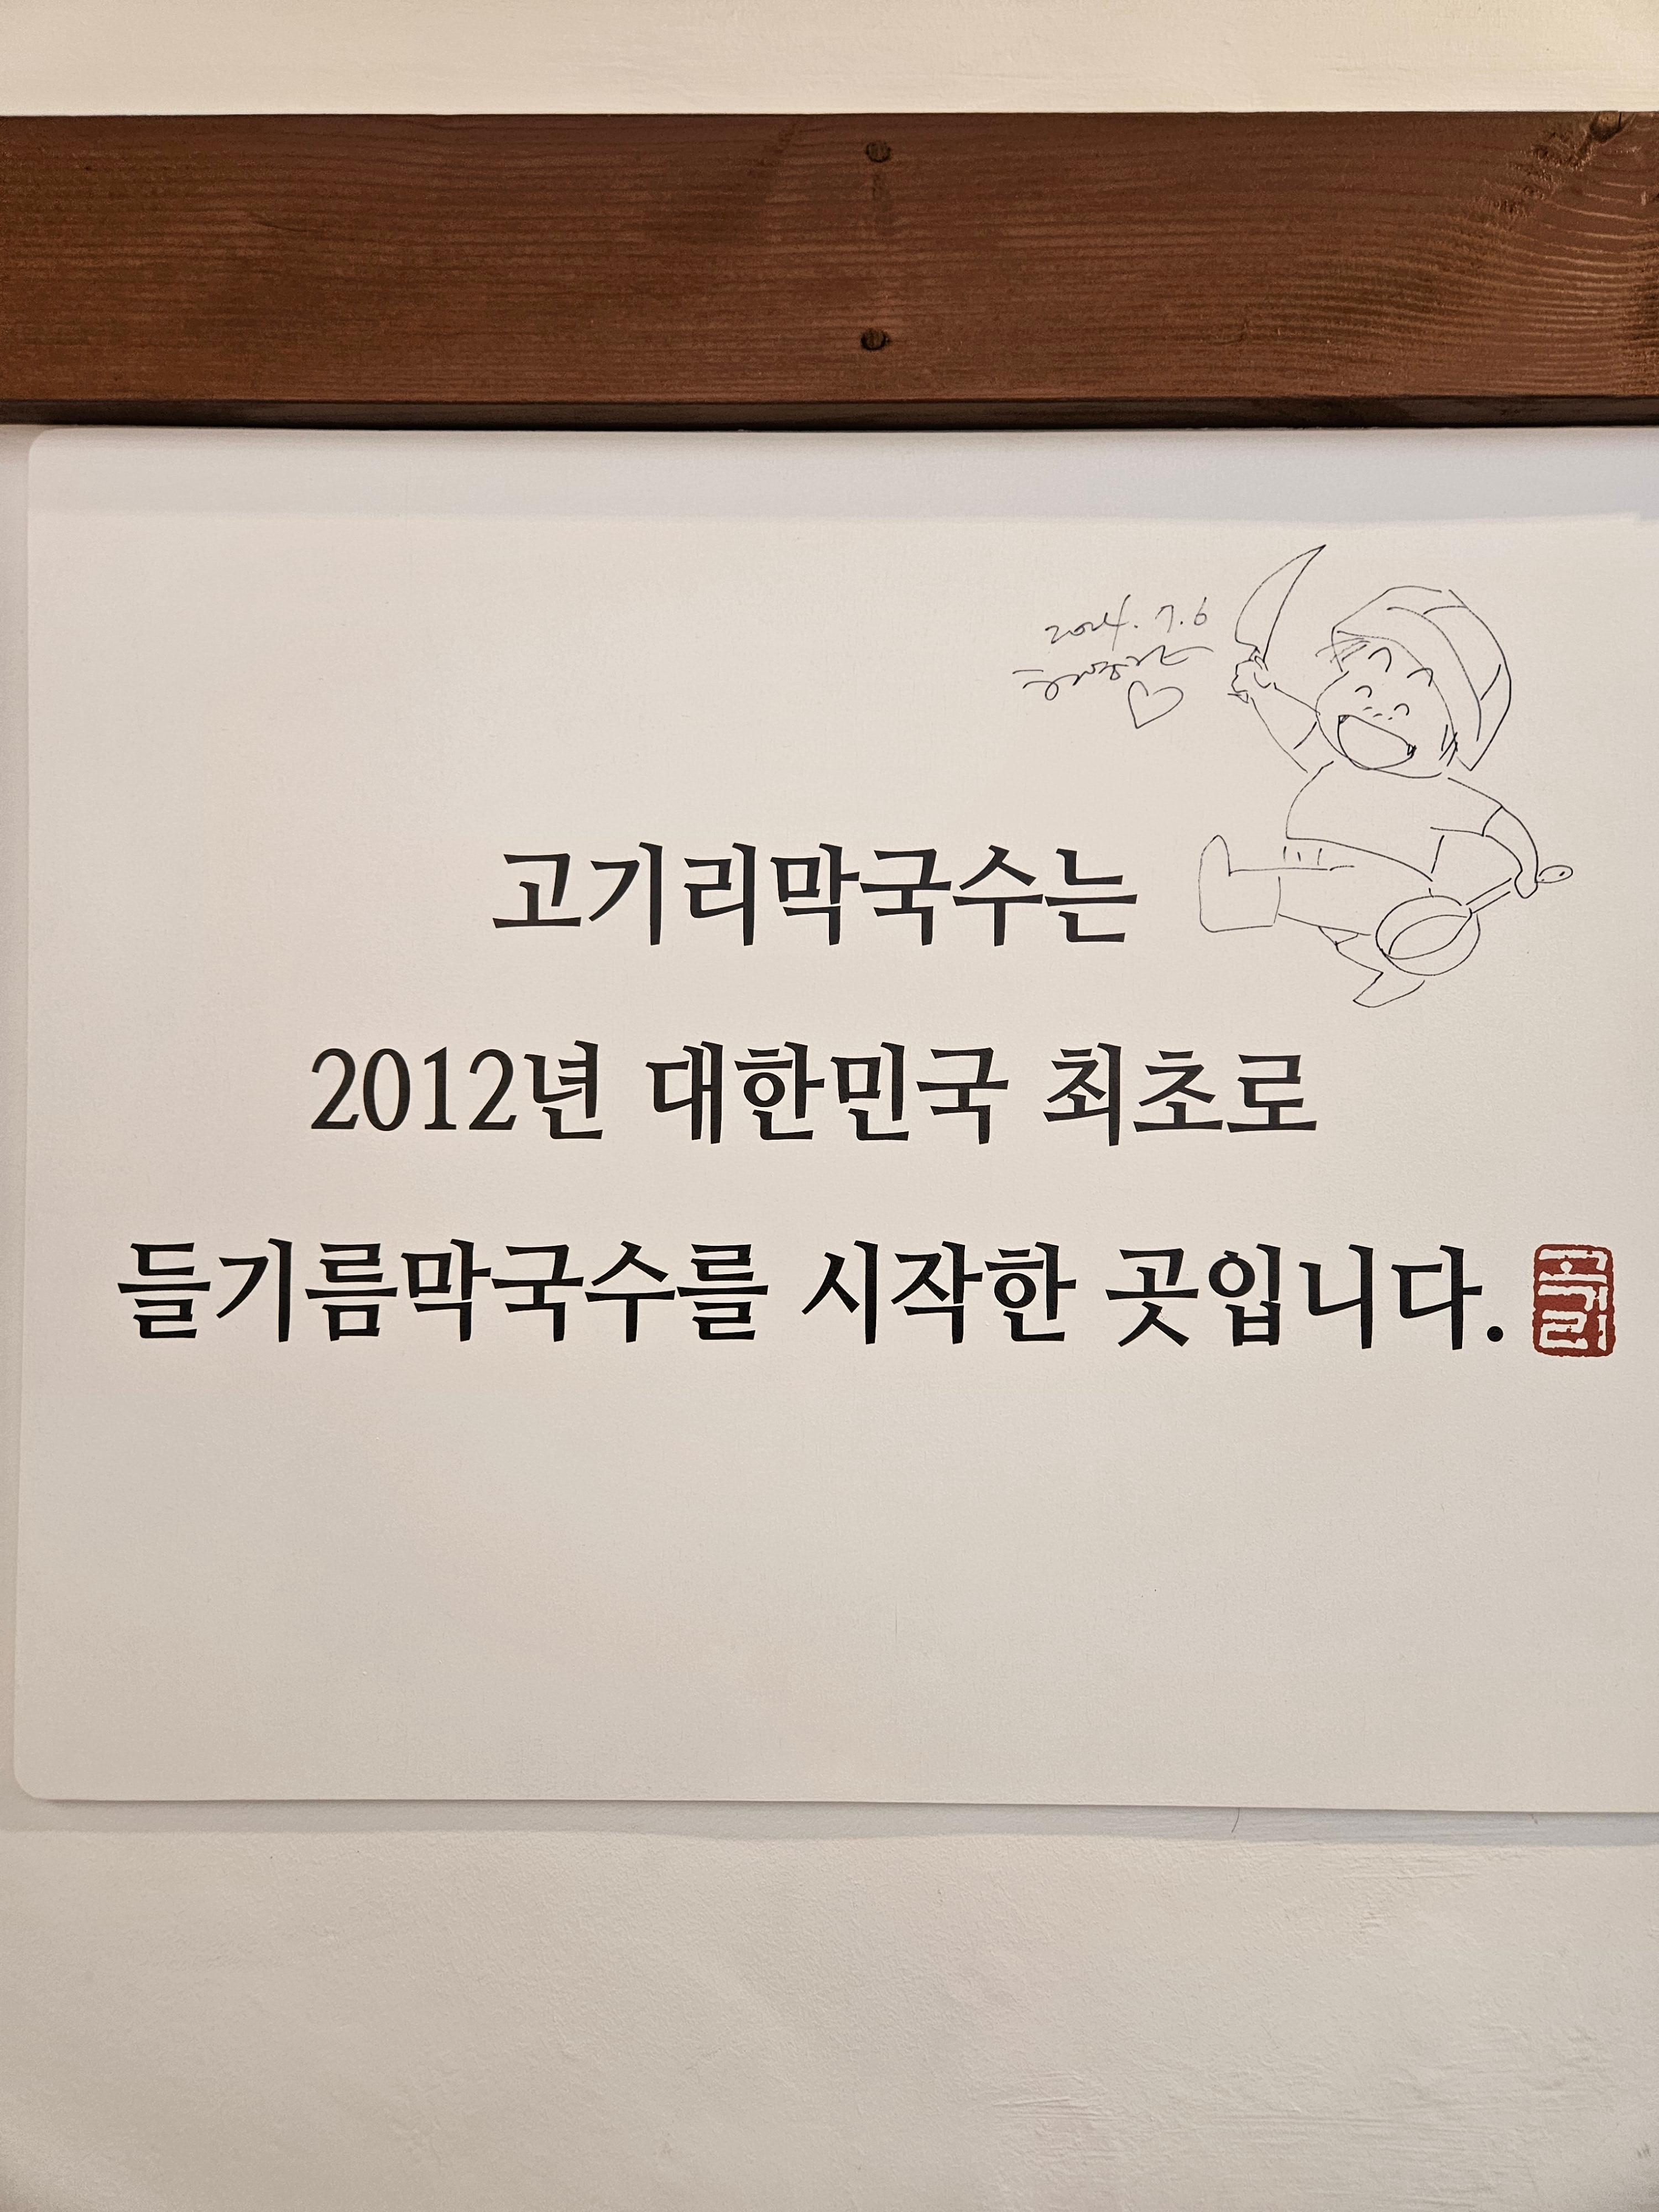 2024. 7. 6
고기리막국수는
2012년 대한민국 최초로
들기름막국수를 시작한 곳입니다.